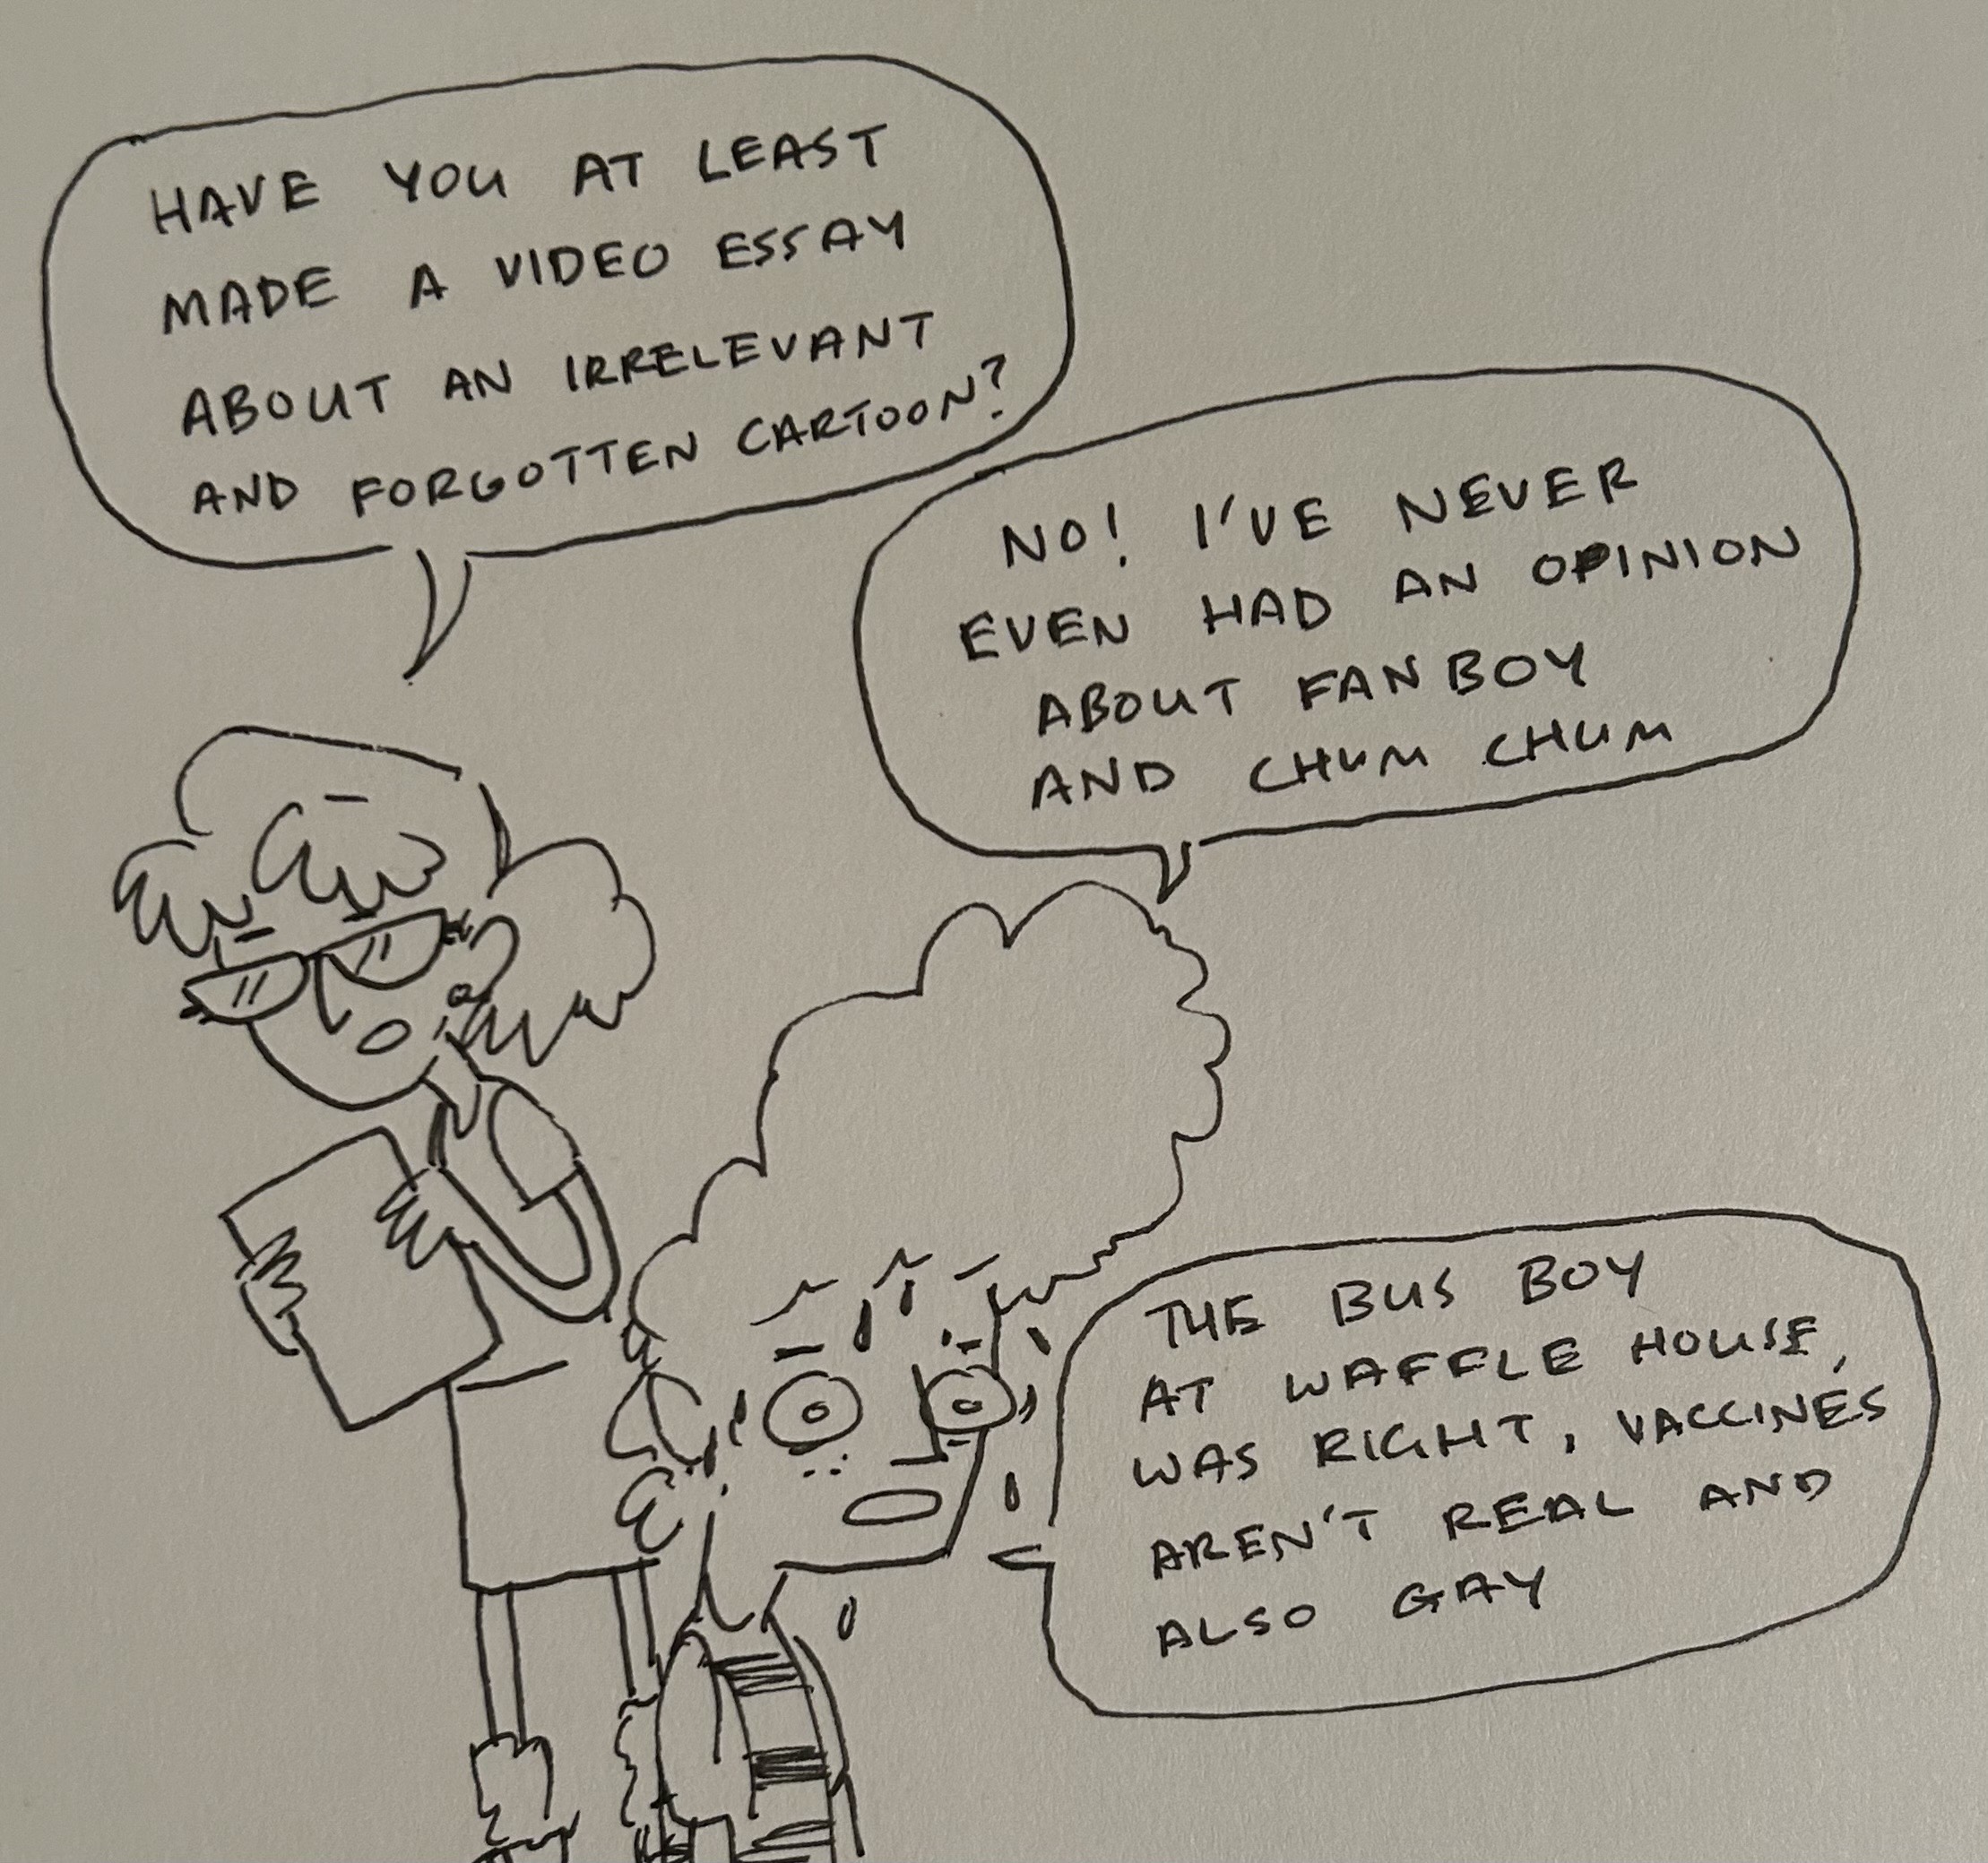 HAVE YOU AT LEAST
MADE A VIDEO ESSAY
ABOUT AN IRRELEVANT
AND FORGOTTEN CARTOON?
NO! I'VE NEVER
EVEN HAD AN OPINION
ABOUT FANBOY
AND CHUM CHUM
THE BUS BOY
AT WAFFLE HOUSE,
WAS RIGHT, VACCINES
AREN'T REAL AND
ALSO GAY